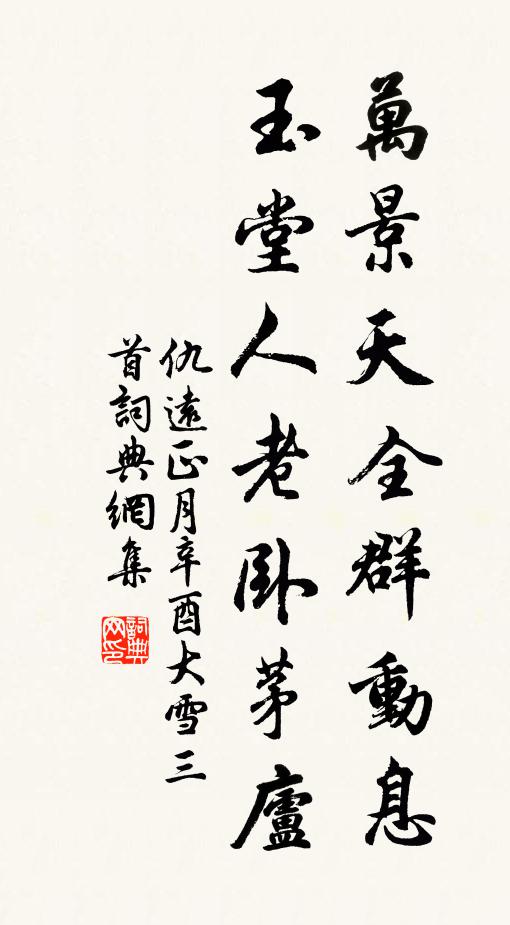 萬景天全群動息
玉堂人老臥茅廬
仇遠正月辛酉大雪三
首詞典網集
詞典
网印